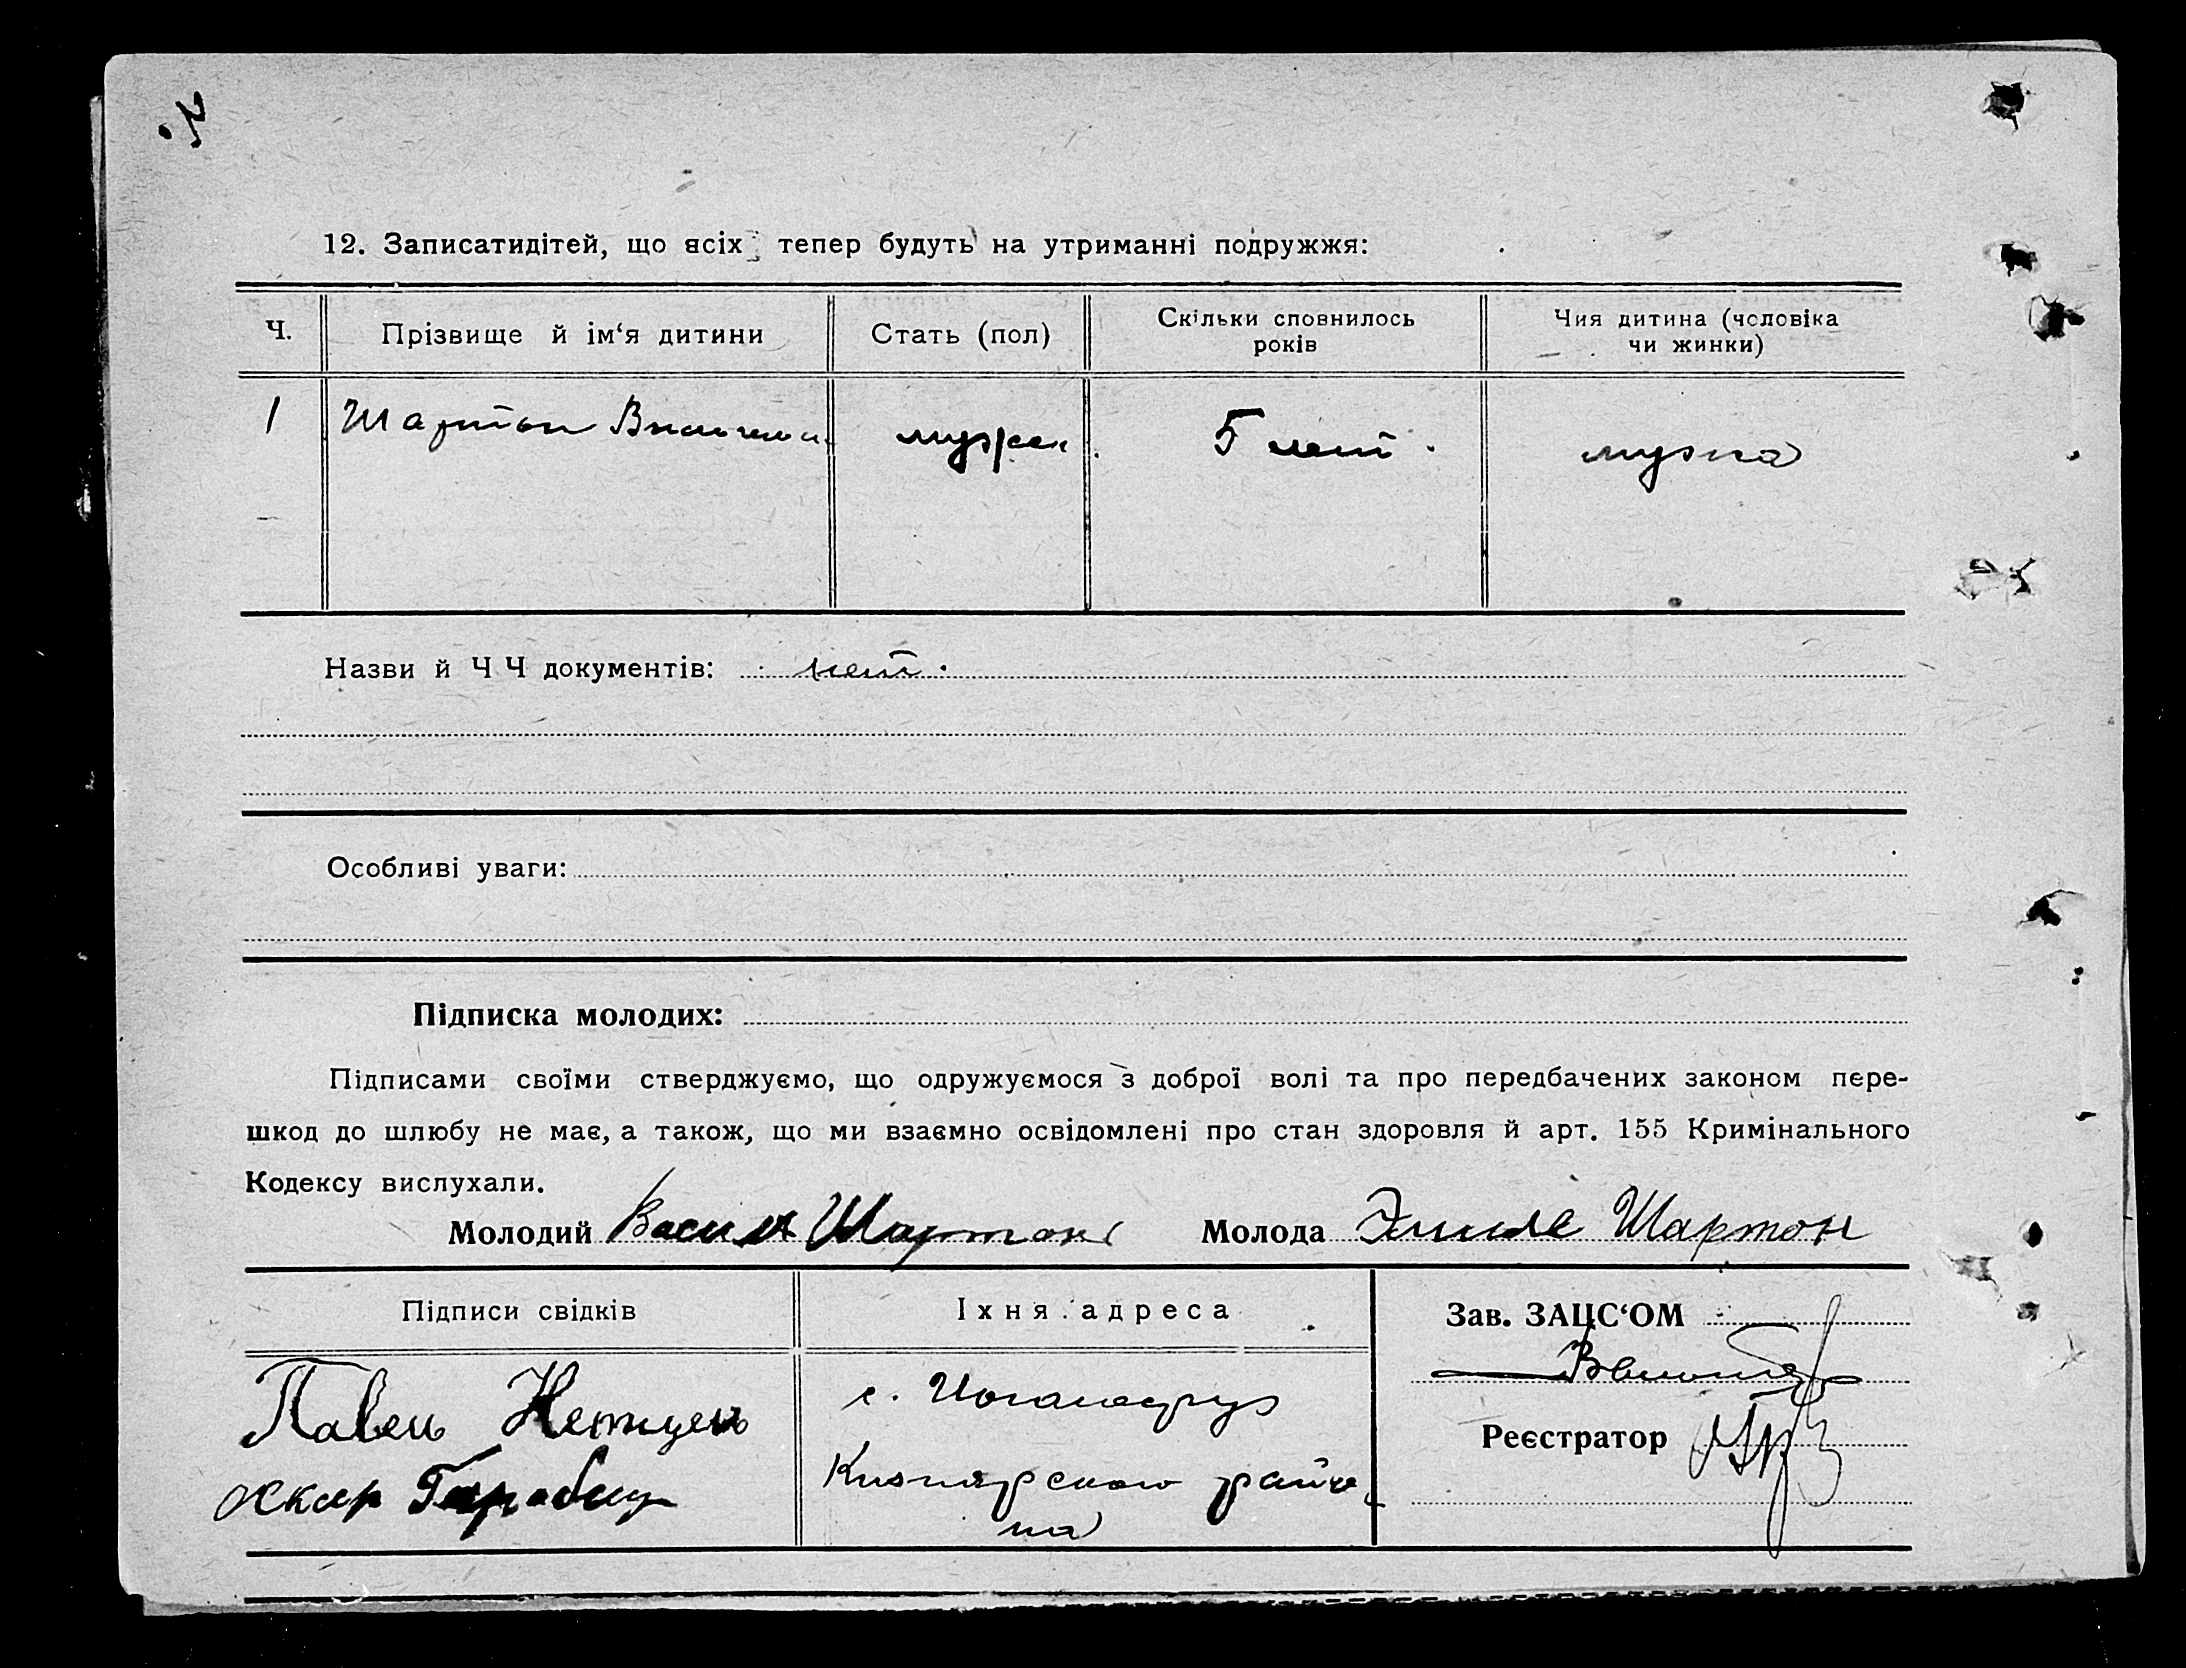 12. Записатидітей, що всіх тепер будуть на утриманні подружжя:
Ч. Прізвище й ім‘я дитини Стать (пол) Скільки сповнилось років Чия дитина (чоловіка чи жинки)
1 Шартон мужск. 5 лет. мужа
Назви й Ч Ч документів: нет.
Особливі уваги:
Підписка молодих:
Підписами своїми стверджуємо, що одружуємося з доброї волі та про передбачених законом пере-
шкод до шлюбу не має, а також, що ми взаємно освідомлені про стан здоровля й арт. 155 Кримінального
Кодексу вислухали.
Молодий Васил Шартон Молода Шартон
Підписи свідків Їхня адреса Зав. ЗАЦС‘ОМ
Павель с.
Оскар района
Реєстратор